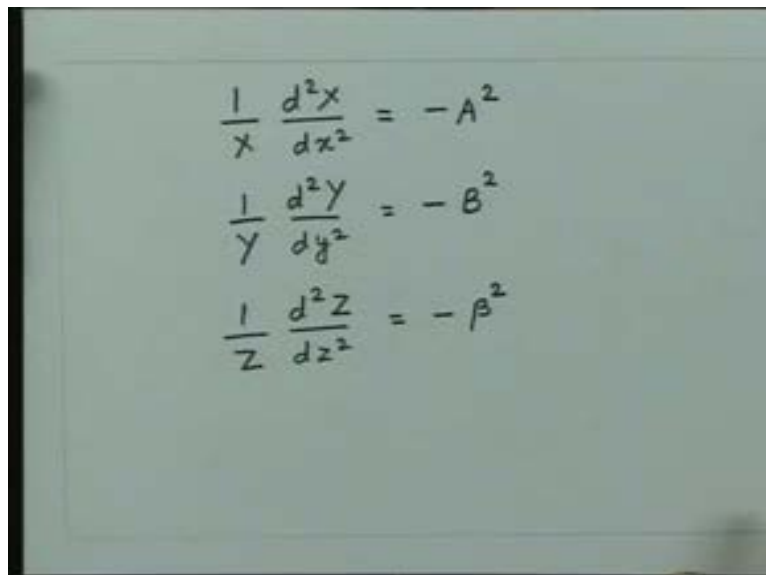 1/X d²X/dx² = -A²
1/Y d²Y/dy² = -B²
1/Z d²Z/dz² = -β²